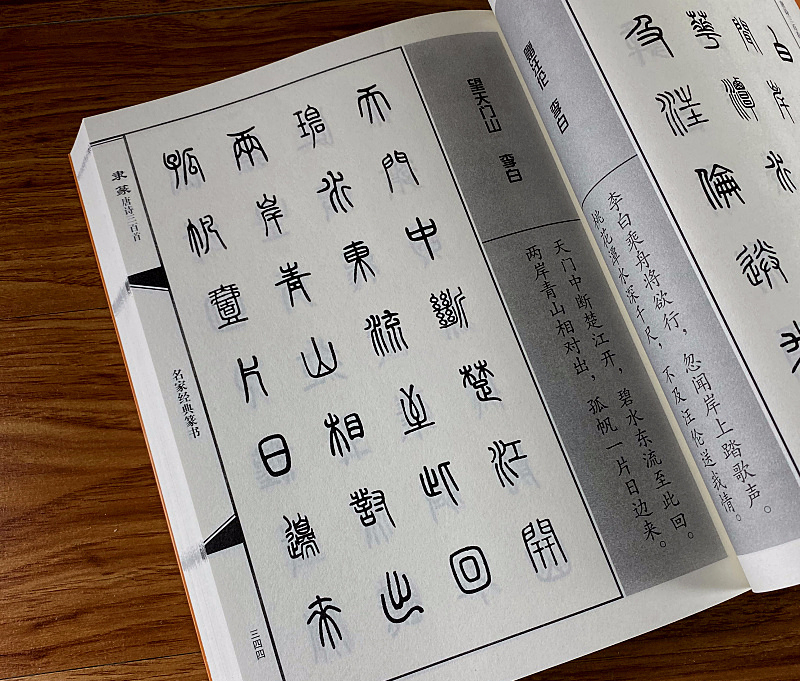 白
聞岸
華潭水
及汪倫送我
赠汪伦 李白
李白乘舟将欲行，忽闻岸上踏歌声。
桃花潭水深千尺，不及汪伦送我情。
望天门山 李白
天门中断楚江开，碧水东流至此回。
两岸青山相对出，孤帆一片日边来。
天門中斷楚江開
碧水東流至此回
兩岸青山相對出
孤帆壹片日邊來
隶篆唐诗三百首
名家经典篆书
三四四